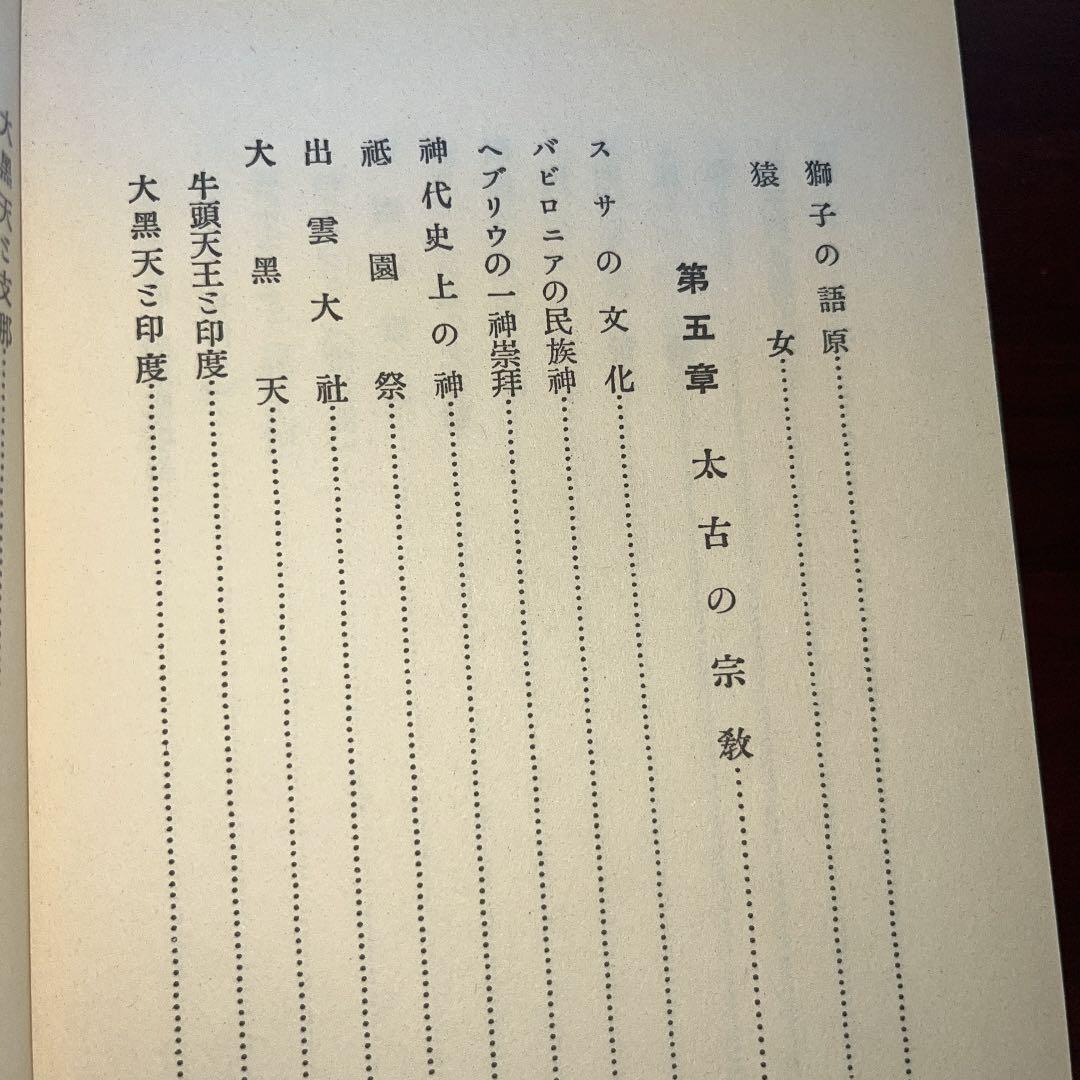 獅子の語原
猿女
第五章 太古の宗敎
スサの文化
バビロニアの民族神
ヘブリウの一神崇拜
神代史上の神
祗園祭
出雲大社
大黑天
牛頭天王と印度
大黑天と印度
大黑天と支那